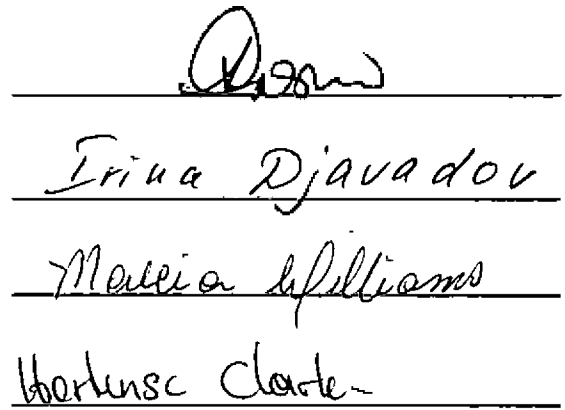 Irina Djavadov
Marcia Williams
Hortense Clarke